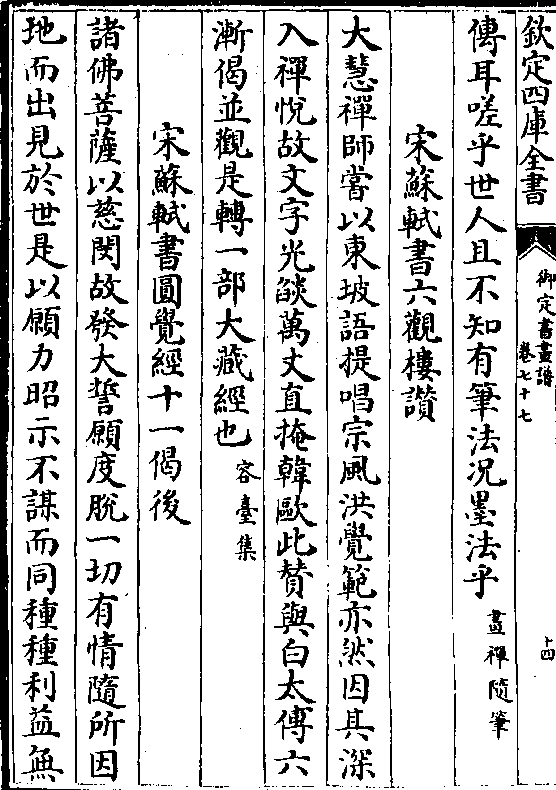 欽定四庫全書
御定書畫譜
卷七十七
十四
傳耳嗟乎世人且不知有筆法况墨法乎畫禪隨筆
宋蘇軾書六觀樓讚
大慧禪師嘗以東坡語提唱宗風洪覺範亦然因其深
入禪悅故文字光燄萬丈直掩韓歐此贊與白太傅六
漸偈並觀是轉一部大藏經也容臺集
宋蘇軾書圓覺經十一偈後
諸佛菩薩以慈閔故發大誓願度脫一切有情隨所因
地而出見於世是以願力昭示不謀而同種種利益無